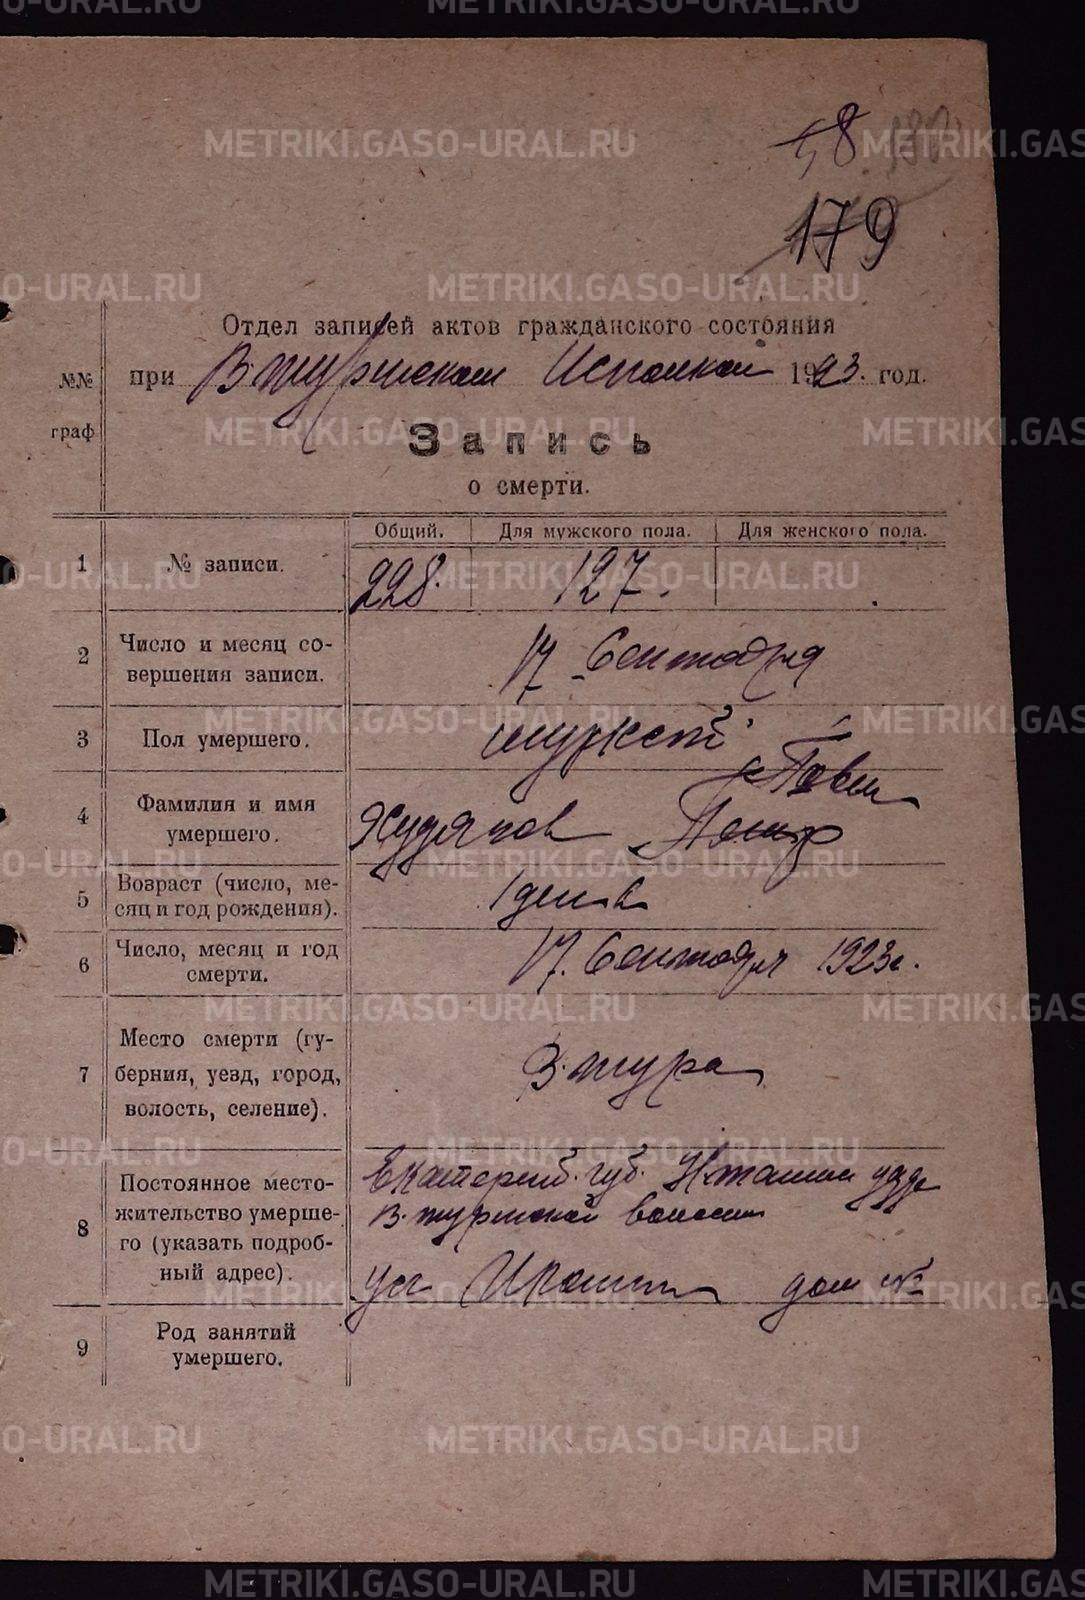 58
179
Отдел записей актов гражданского состояния
при В-Туринском Исполкоме 1923 год.
№№ граф
Запись
о смерти.
Общий. Для мужского пола. Для женского пола.
1 № записи. 228. 127.
2 Число и месяц со-
вершения записи. 17 Сентября
3 Пол умершего. мужской
4 Фамилия и имя
умершего. Худяков Петр и Павел
5 Возраст (число, ме-
сяц и год рождения). 1 день
6 Число, месяц и год
смерти. 17. Сентября 1923 г.
7 Место смерти (гу-
берния, уезд, город,
волость, селение). В. Тура
8 Постоянное место-
жительство умерше-
го (указать подроб-
ный адрес).
Екатеринб. губ. Н Тагил
В. Туринской волости
ул дом №
9 Род занятий
умершего.
METRIKI.GASO-URAL.RU